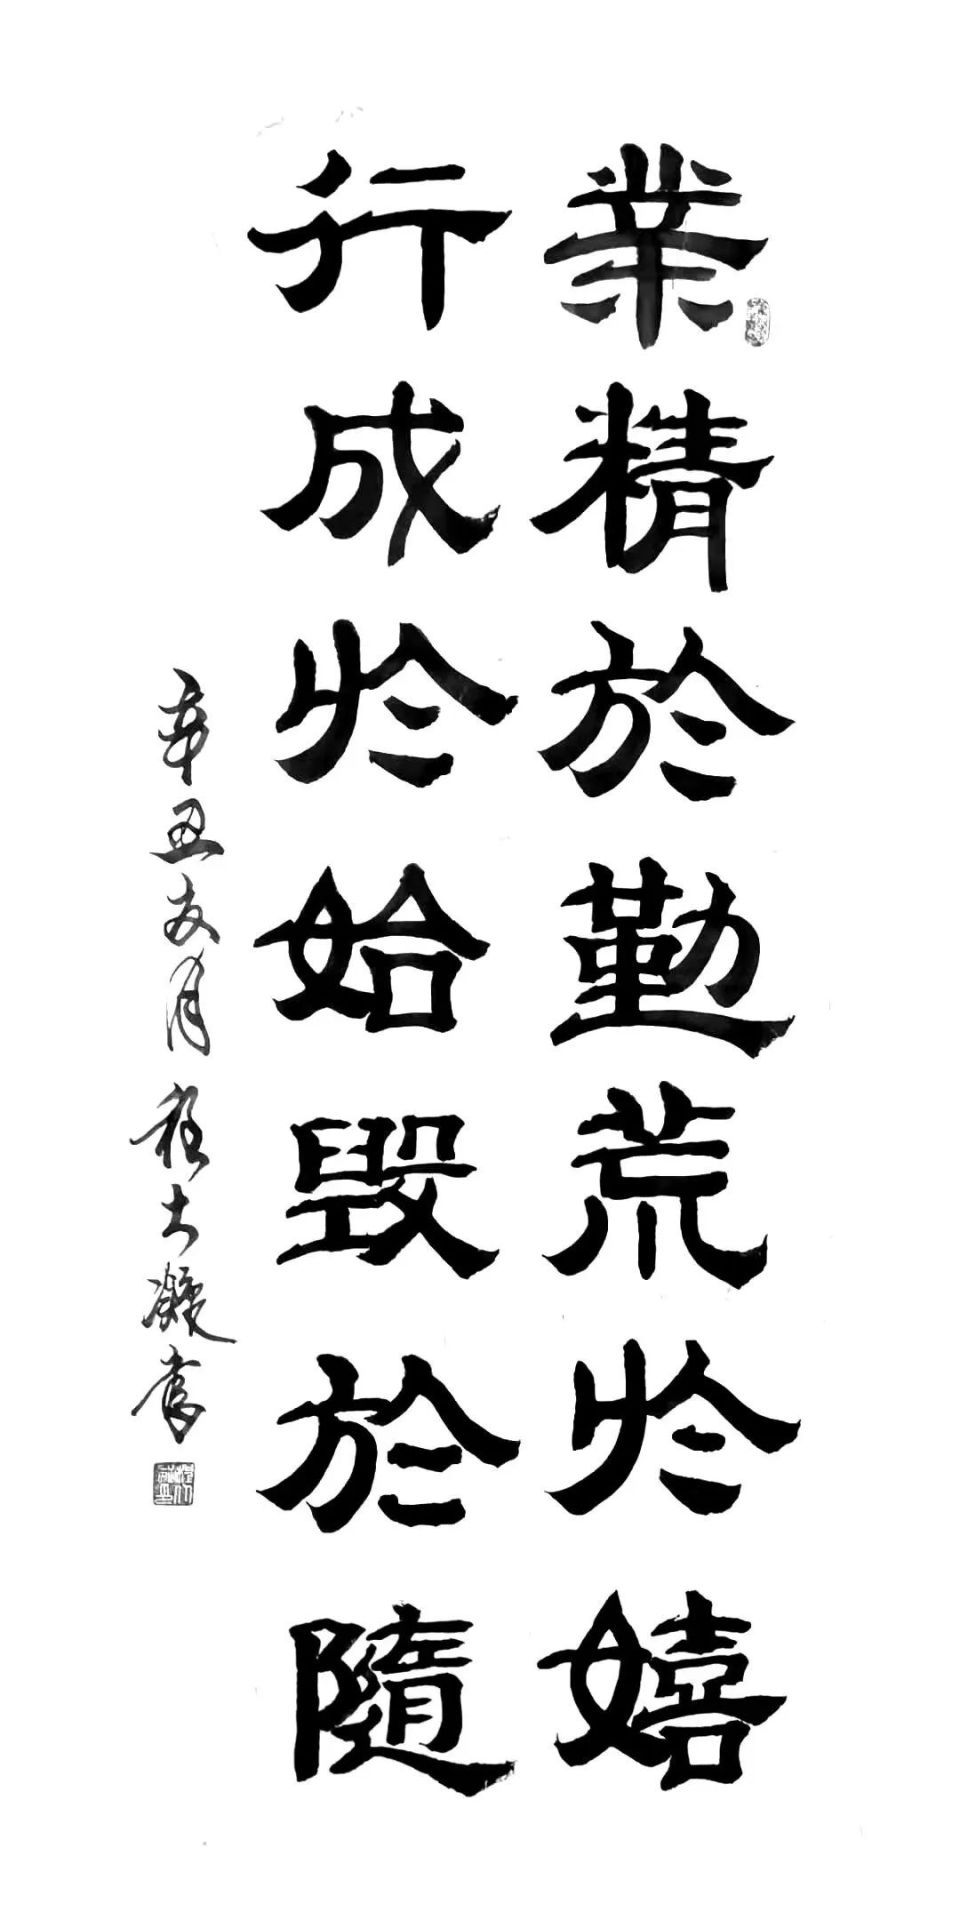 業精於勤荒於嬉
行成於始毀於隨
辛丑友月程大凝書